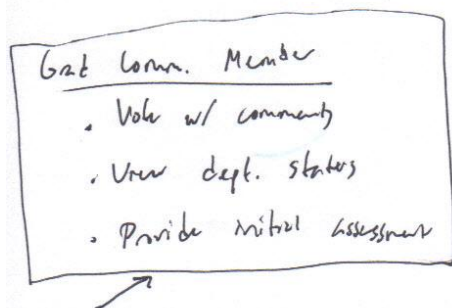 Grad Comm. Member
• Vote w/ comments
• View dept. status
• Provide initial assessment